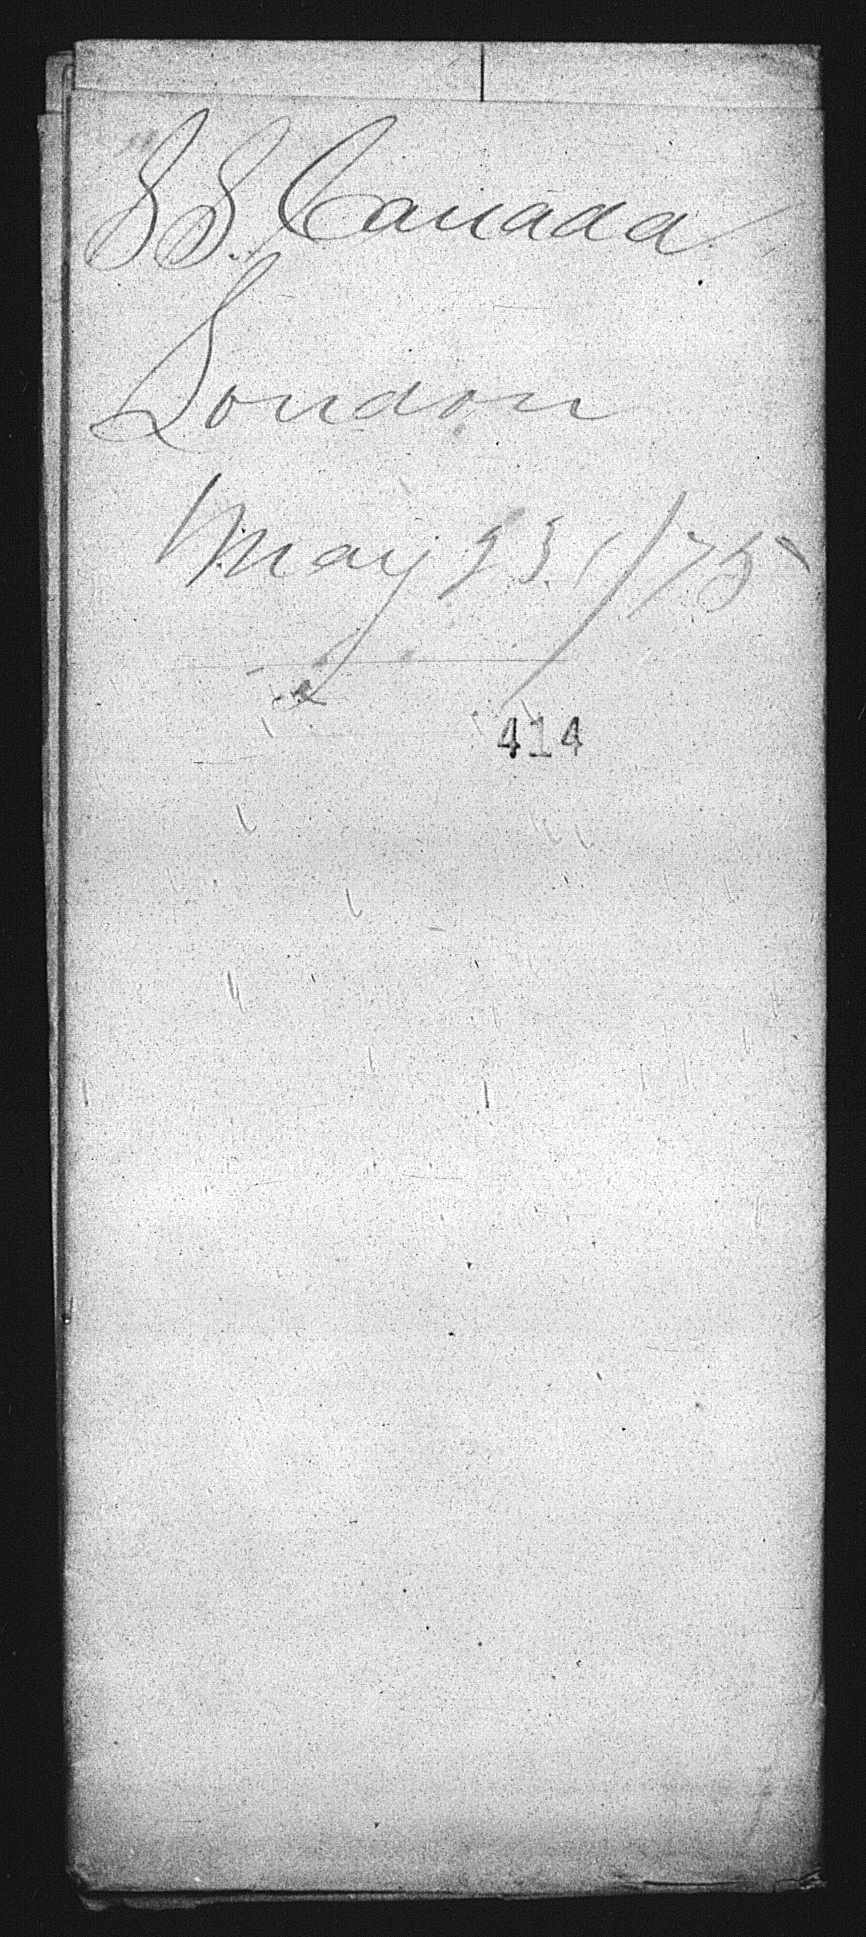 SS. Canada.
London
May 23/75
414